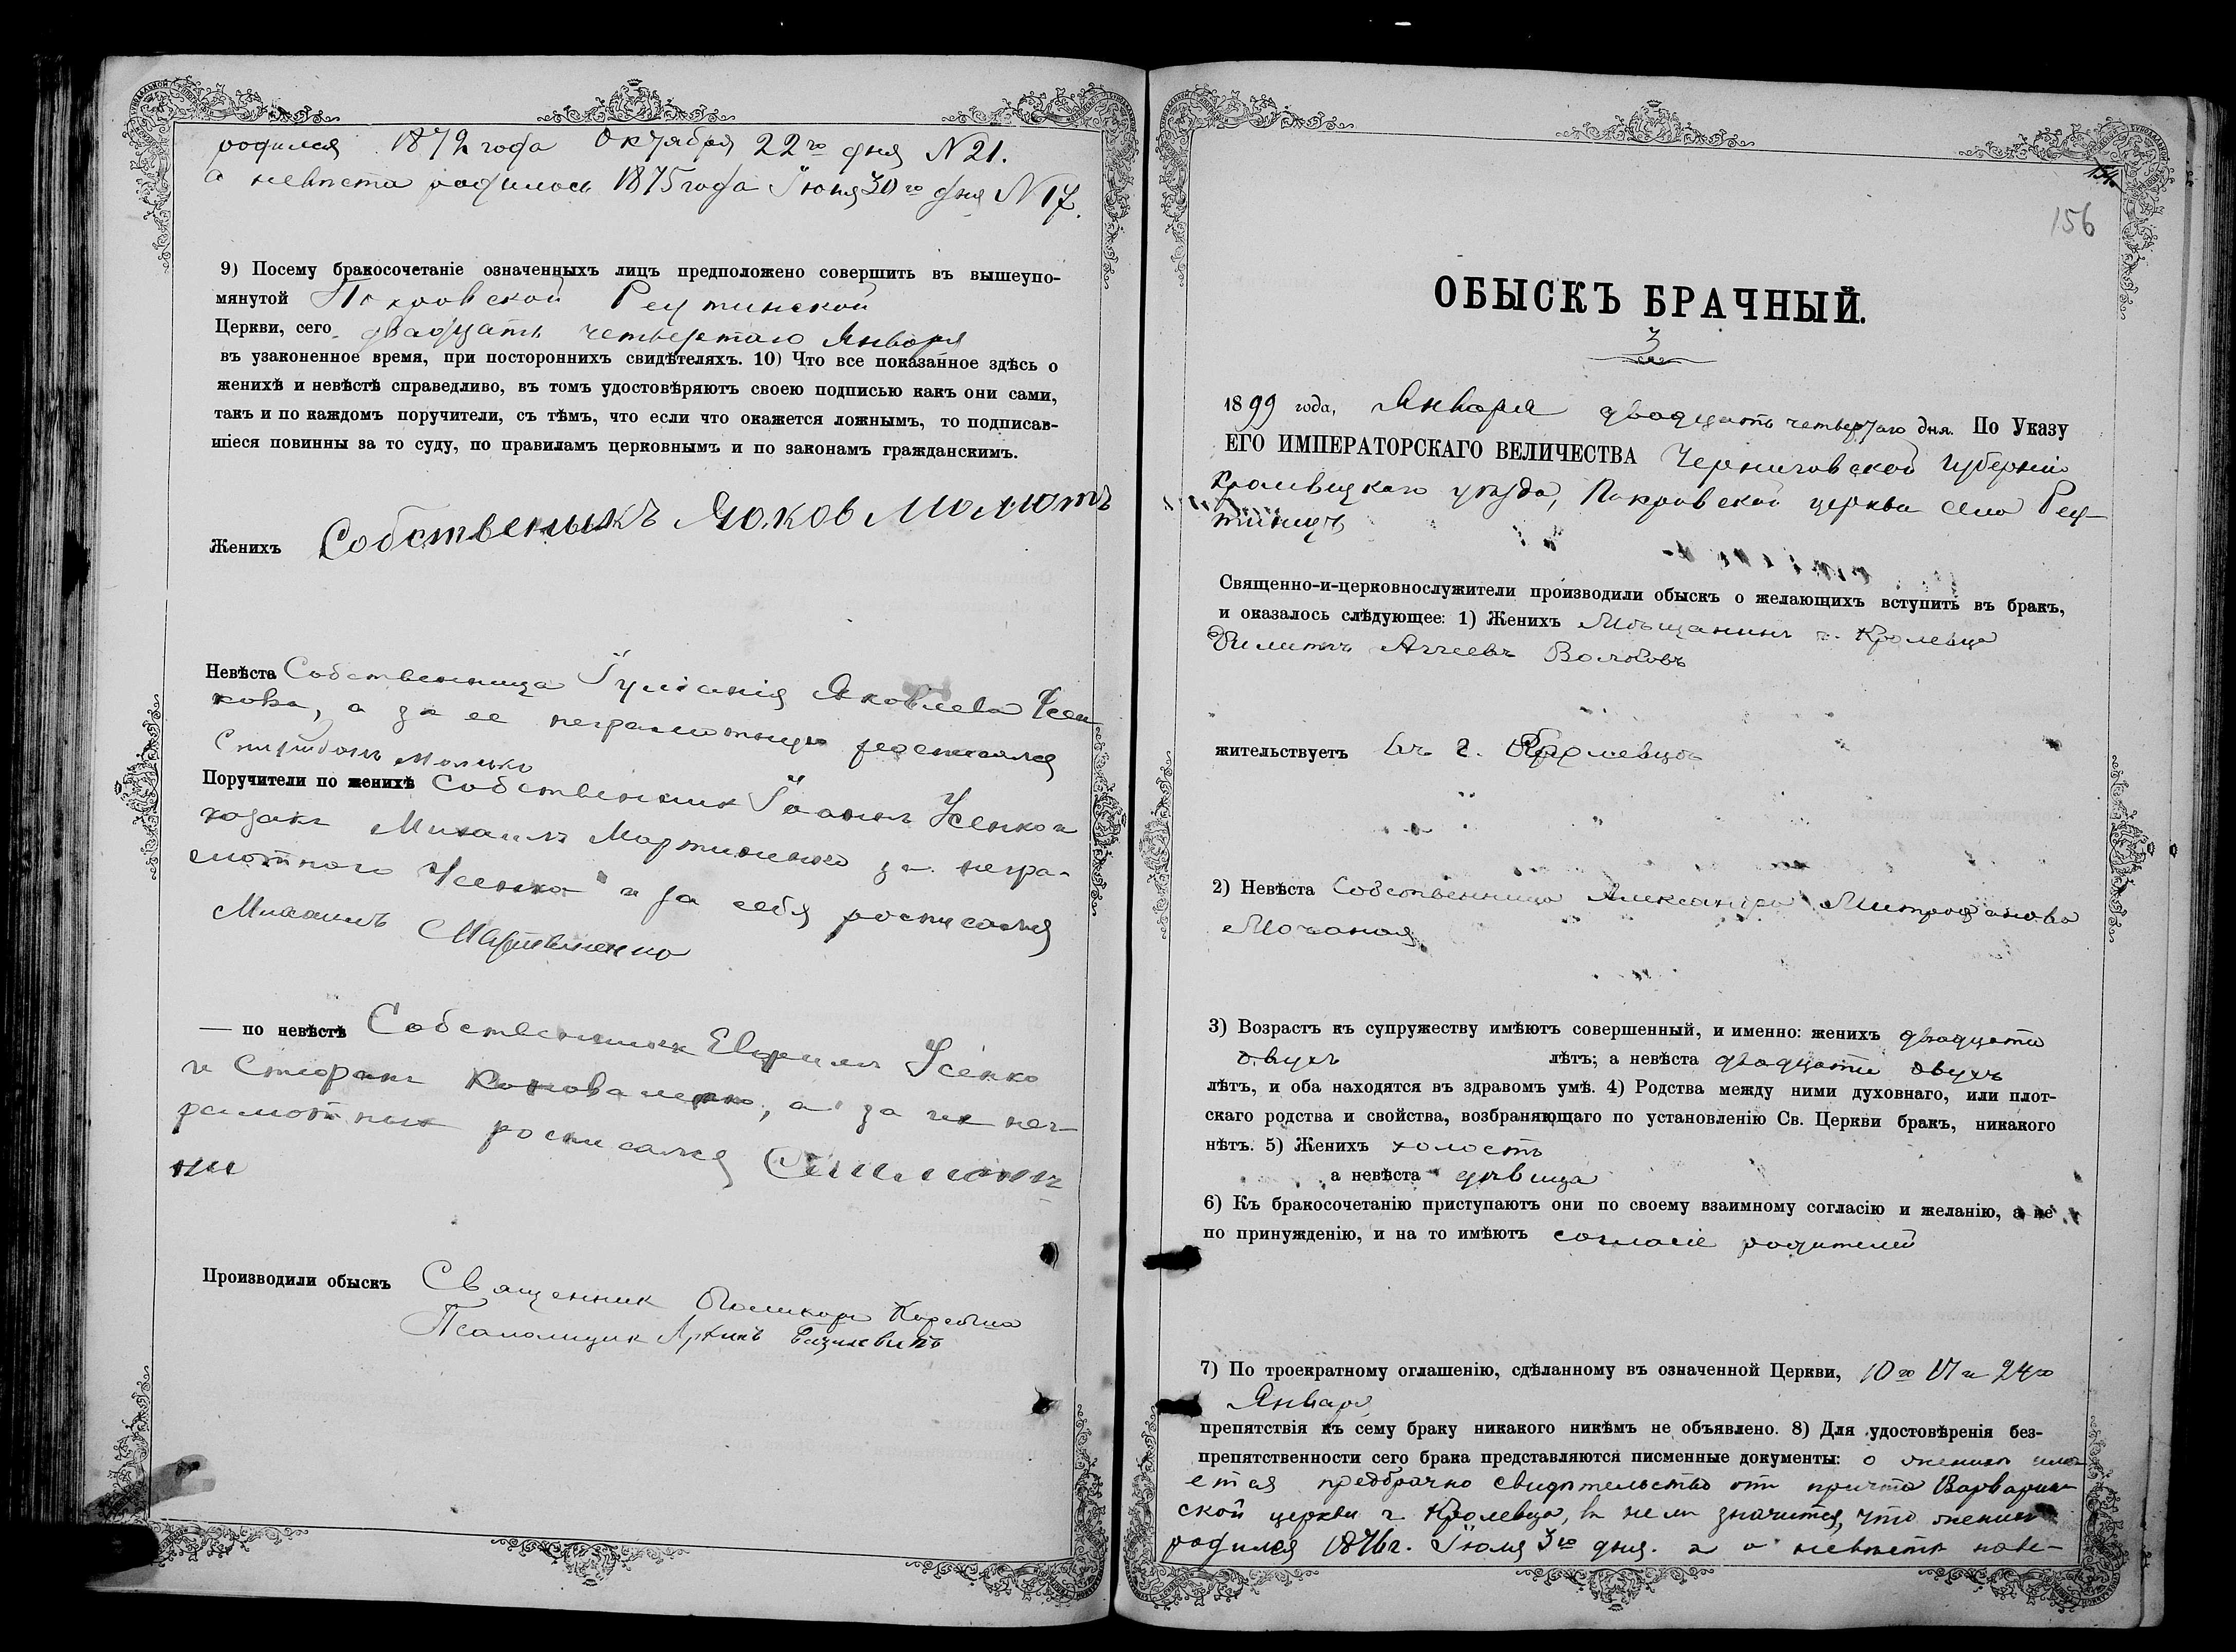 родился 1872 года Октября 22го дня N 21.
а невеста родилась 1875 года Іюня 30го дня N 17.
9) Посему бракосочетаніе означенныхъ лицъ предположено совершить въ вышеупо-
мянутой Покровской Реутинской
Церкви, сего двадцать четвертаго Января
въ узаконенное время, при постороннихъ свидѣтеляхъ. 10) Что все показанное здѣсь о
женихѣ и невѣстѣ справедливо, въ томъ удостовѣряютъ своею подписью какъ они сами,
такъ и по каждомъ поручители, съ тѣмъ, что если что окажется ложнымъ, то подписав-
шіеся повинны за то суду, по правиламъ церковнымъ и по законамъ гражданскимъ.
Женихъ Собственыкъ Яков
Невѣста Собственница Іуліанія Яковлева Усен
кова, а за ее неграмотную росписался
Спиридонъ
Поручители по женихѣ Собственник Іоанн Усенко и
козакъ Михаилъ Мартиненко за негра-
мотного Усенка и за себя росписался
Михаилъ Мартиненко
— по невѣстѣ Собственник Усенко
и Стефанъ Коноваленко, а за их нег-
рамотных росписался
Производили обыскъ Священник Поликарп
Псаломщик
154
156
ОБЫСКЪ БРАЧНЫЙ.
3
1899 года, Января двадцать четвертаго дня. По Указу
ЕГО ИМПЕРАТОРСКАГО ВЕЛИЧЕСТВА Черниговской губерніи
Кролевецкаго уѣзда, Покровской церкви села Реу-
тинецъ
Священно-и-церковнослужители производили обыскъ о желающихъ вступить въ бракъ,
и оказалось слѣдующее: 1) Женихъ Мѣщанинъ г. Кролевца
Филиппъ Аггеевъ Волковъ
жительствуетъ въ г. Кролевцѣ
2) Невѣста Собственница Александра Митрофанова
Мочаная
3) Возрастъ къ супружеству имѣютъ совершенный, и именно: женихъ двадцати
двухъ лѣтъ; а невѣста двадцати двухъ
лѣтъ, и оба находятся въ здравомъ умѣ. 4) Родства между ними духовнаго, или плот-
скаго родства и свойства, возбраняющаго по установленію Св. Церкви бракъ, никакого
нѣтъ. 5) Женихъ холостъ
а невѣста дѣвица
6) Къ бракосочетанію приступаютъ они по своему взаимному согласію и желанію, а не
по принужденію, и на то имѣютъ согласіе родителей
7) По троекратному оглашенію, сдѣланному въ означенной Церкви, 10го 17 и 24го
Января
препятствія къ сему браку никакого никѣмъ не объявлено. 8) Для удостовѣренія без-
препятственности сего брака представляются писменные документы: о женихѣ име-
ется предбрачно свидѣтельство отъ причта Варварин-
ской церкви г. Кролевца, въ нем значится, что женихъ
родился 1876 г. Іюля 3го дня. а о невѣстѣ пове-